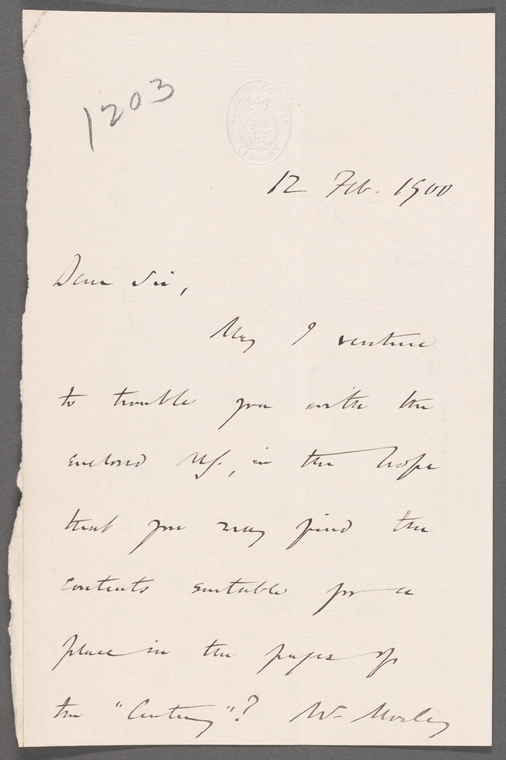 1203
HOUSE OF COMMONS
LIBRARY
12 Feb. 1900
Dear Sir,
May I venture
to trouble you with the
enclosed MS., in the hope
that you may find the
contents suitable for a
place in the pages of
the "Century"? Mr Morley